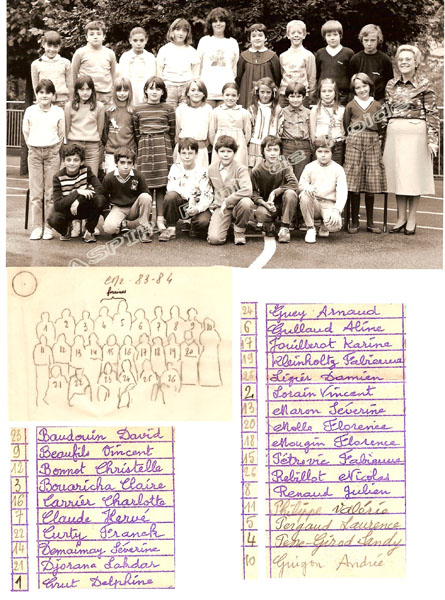 cm2-83-84
1 2 3 4 5 6 7 8 9 10
11 12 13 14 15 16 17 18 19 20
21 22 23 24 25 26
23 Baudouin David
9 Beaufils Vincent
12 Bonnet Christelle
3 Bouaricha Claire
16 Carrier Charlotte
7 Claude Hervé
22 Curty Franck
14 Demaimay Séverine
21 Djorana Lakdar
1 Grut Delphine
24 Guey Arnaud
6 Guillaud Aline
17 Jouillerot Karine
19 Kleinholtz Fabienne
25 Légier Damien
2 Lorain Vincent
13 Maron Séverine
20 Molle Florence
18 Mougin Florence
15 Pétrovic Fabienne
26 Rebillot Nicolas
8 Renaud Julien
11 Philippe Valérie
5 Pergaud Laurence
4 Petre-Girod Sandy
10 Grigon André